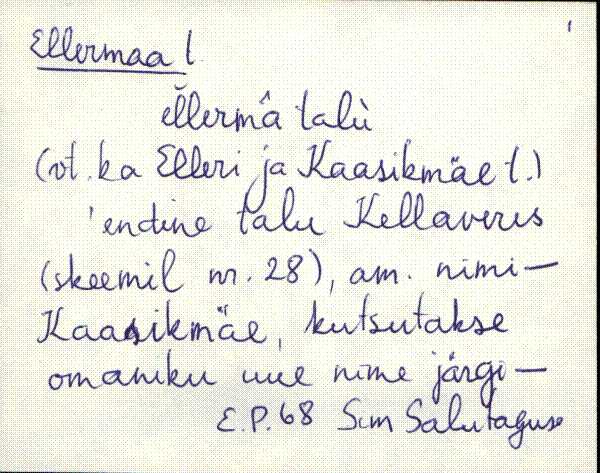 Ellermaa t.
ĕllermâ talù
(vt. ka Elleri ja Kaasikmäe t.)
'endine talu Kellaveres
(skeemil nr. 28), am. nimi—
Kaasikmäe, kutsutakse
omaniku uue nime järgi—
E.P. 68 Sim Salutaguse